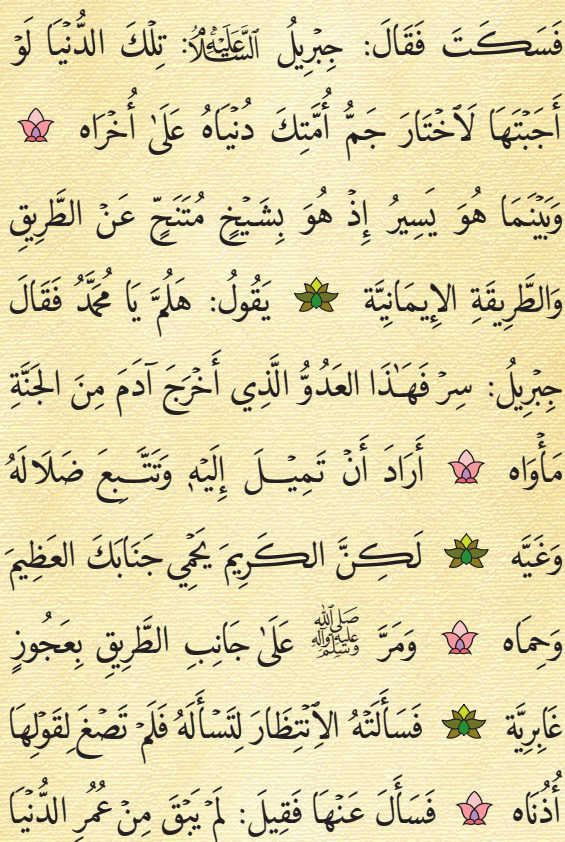 فَسَكَتَ فَقَالَ: جِبْرِيلُ عَلَيْهِ السَّلَامُ: تِلْكَ الدُّنْيَا لَوْ
أَجَبْتَهَا لَاخْتَارَ جَمُّ أُمَّتِكَ دُنْيَاهُ عَلَىٰ أُخْرَاه
وَبَيْنَمَا هُوَ يَسِيرُ إِذْ هُوَ بِشَيْخٍ مُتَنَحٍّ عَنْ الطَّرِيقِ
وَالطَّرِيقَةِ الإِيمَانِيَّة يَقُولُ: هَلُمَّ يَا مُحَمَّدُ فَقَالَ
جِبْرِيلُ: سِرْ فَهَٰذَا العَدُوُّ الَّذِي أَخْرَجَ آدَمَ مِنَ الجَنَّةِ
مَأْوَاه أَرَادَ أَنْ تَمِيْلَ إِلَيْهِ وَتَتَّبِعَ ضَلَالَهُ
وَغَيَّه لَكِنَّ الكَرِيمَ يَحْمِي جَنَابَكَ العَظِيمَ
وَحِمَاه وَمَرَّ ﷺ عَلَىٰ جَانِبِ الطَّرِيقِ بِعَجُوزٍ
غَابِرِيَّة فَسَأَلَتْهُ الِانْتِظَارَ لِتَسْأَلَهُ فَلَمْ تَصْغَ لِقَوْلِهَا
أُذُنَاه فَسَأَلَ عَنْهَا فَقِيلَ: لَمْ يَبْقَ مِنْ عُمُرِ الدُّنْيَا